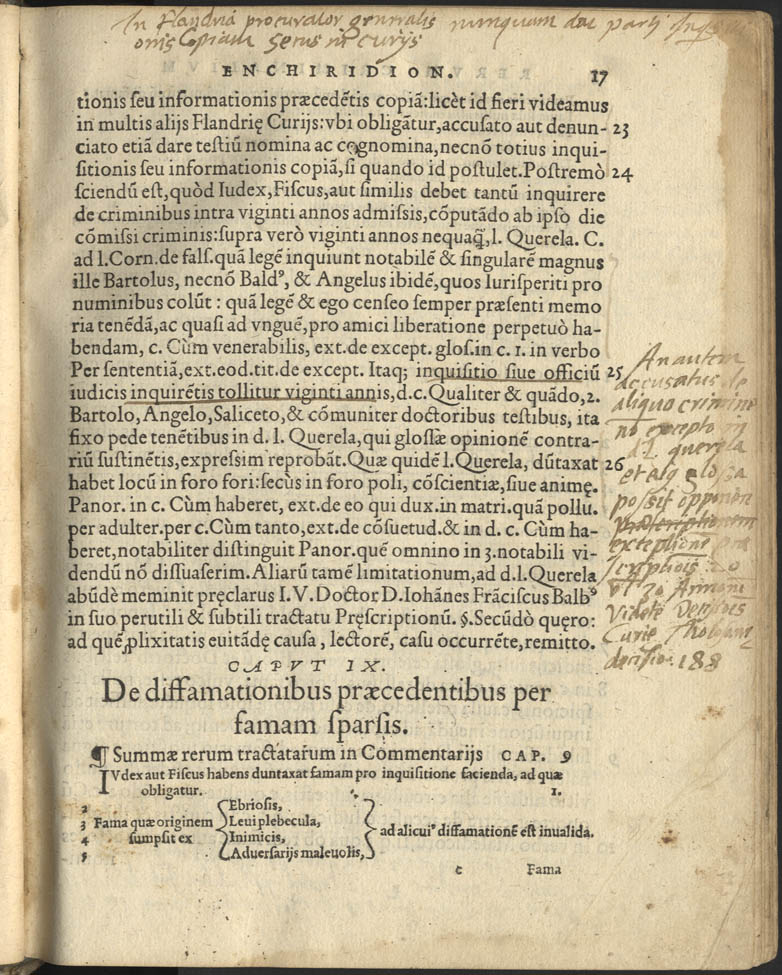 In Flandria procurator generalis nunquam dat parti
onis Copiam secus in curijs
ENCHIRIDION. 17
tionis seu informationis præcedẽtis copiã:licèt id fieri videamus
in multis alijs Flandrię Curijs:vbi obligãtur,accusato aut denun- 23
ciato etiã dare testiũ nomina ac cognomina,necnõ totius inqui-
sitionis seu informationis copiã,si quando id postulet.Postremò 24
sciendũ est,quòd Iudex,Fiscus,aut similis debet tantũ inquirere
de criminibus intra viginti annos admissis,cõputãdo ab ipso die
cõmissi criminis:supra verò viginti annos nequaq̃,l. Querela. C.
ad l.Corn.de fals.quã legẽ inquiunt notabilẽ & singularẽ magnus
ille Bartolus, necnõ Baldꝰ, & Angelus ibidẽ,quos Iurisperiti pro
numinibus colũt : quã legẽ & ego censeo semper præsenti memo
ria tenẽdã,ac quasi ad vnguẽ,pro amici liberatione perpetuò ha-
bendam, c. Cùm venerabilis, ext.de except. glos.in c. 1. in verbo
Per sententiã,ext.eod.tit.de except. Itaq; inquisitio siue officiũ 25
iudicis inquirẽtis tollitur viginti annis,d.c.Qualiter & quãdo,2.
Bartolo,Angelo,Saliceto,& cõmuniter doctoribus testibus, ita
fixo pede tenẽtibus in d. l. Querela,qui glossæ opinionẽ contra-
riũ sustinẽtis,expressim reprobãt.Quæ quidẽ l.Querela, dũtaxat 26
habet locũ in foro fori:secùs in foro poli, cõscientiæ,siue animę.
Panor. in c. Cùm haberet, ext.de eo qui dux.in matri.quã pollu.
per adulter.per c.Cùm tanto,ext.de cõsuetud.& in d. c. Cùm ha-
beret,notabiliter distinguit Panor.quẽ omnino in 3.notabili vi-
dendũ nõ dissuaserim.Aliarũ tamẽ limitationum,ad d.l.Querela
abũdè meminit pręclarus I.V.Doctor D.Iohãnes Frãciscus Balbꝰ
in suo perutili & subtili tractatu Pręscriptionũ. §.Secũdò quęro:
ad quẽ,plixitatis euitãdę causa, lectorẽ, casu occurrẽte,remitto.
An autem
accusatus de
aliquo crimine
nõ excepto in
d l. querela
et alq
possit opponere
præscriptionem
exceptione præ
scriptiois 20
vl 30 Annorũ
Videte Decisiões
Curie Tholosane
decisio. 188
CAPVT IX.
De diffamationibus præcedentibus per
famam sparsis.
¶ Summæ rerum tractatarum in Commentarijs CAP. 9
IVdex aut Fiscus habens duntaxat famam pro inquisitione facienda, ad quæ
obligatur. 1.
2 Ebriosis,
3 Fama quæ originem Leui plebecula,
4 sumpsit ex Inimicis, ad alicuiꝰ diffamationẽ est inualida.
5 Aduersarijs maleuolis,
c Fama